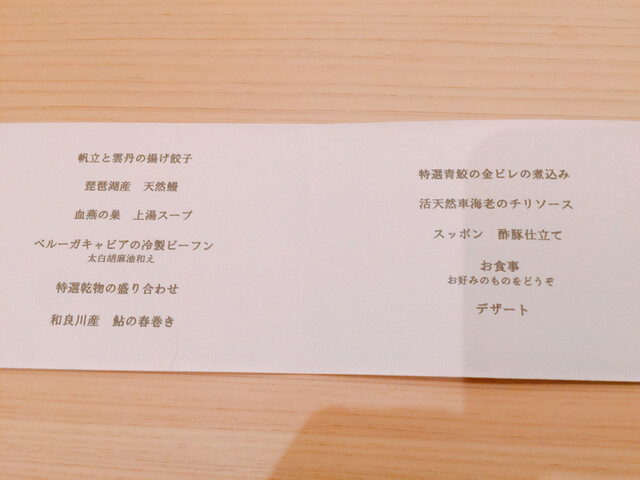 帆立と雲丹の揚げ餃子
琵琶湖産　天然鰻
血燕の巣　上湯スープ
ベルーガキャビアの冷製ビーフン
太白胡麻油和え
特選乾物の盛り合わせ
和良川産　鮎の春巻き
特選青鮫の金ビレの煮込み
活天然車海老のチリソース
スッポン　酢豚仕立て
お食事
お好みのものをどうぞ
デザート